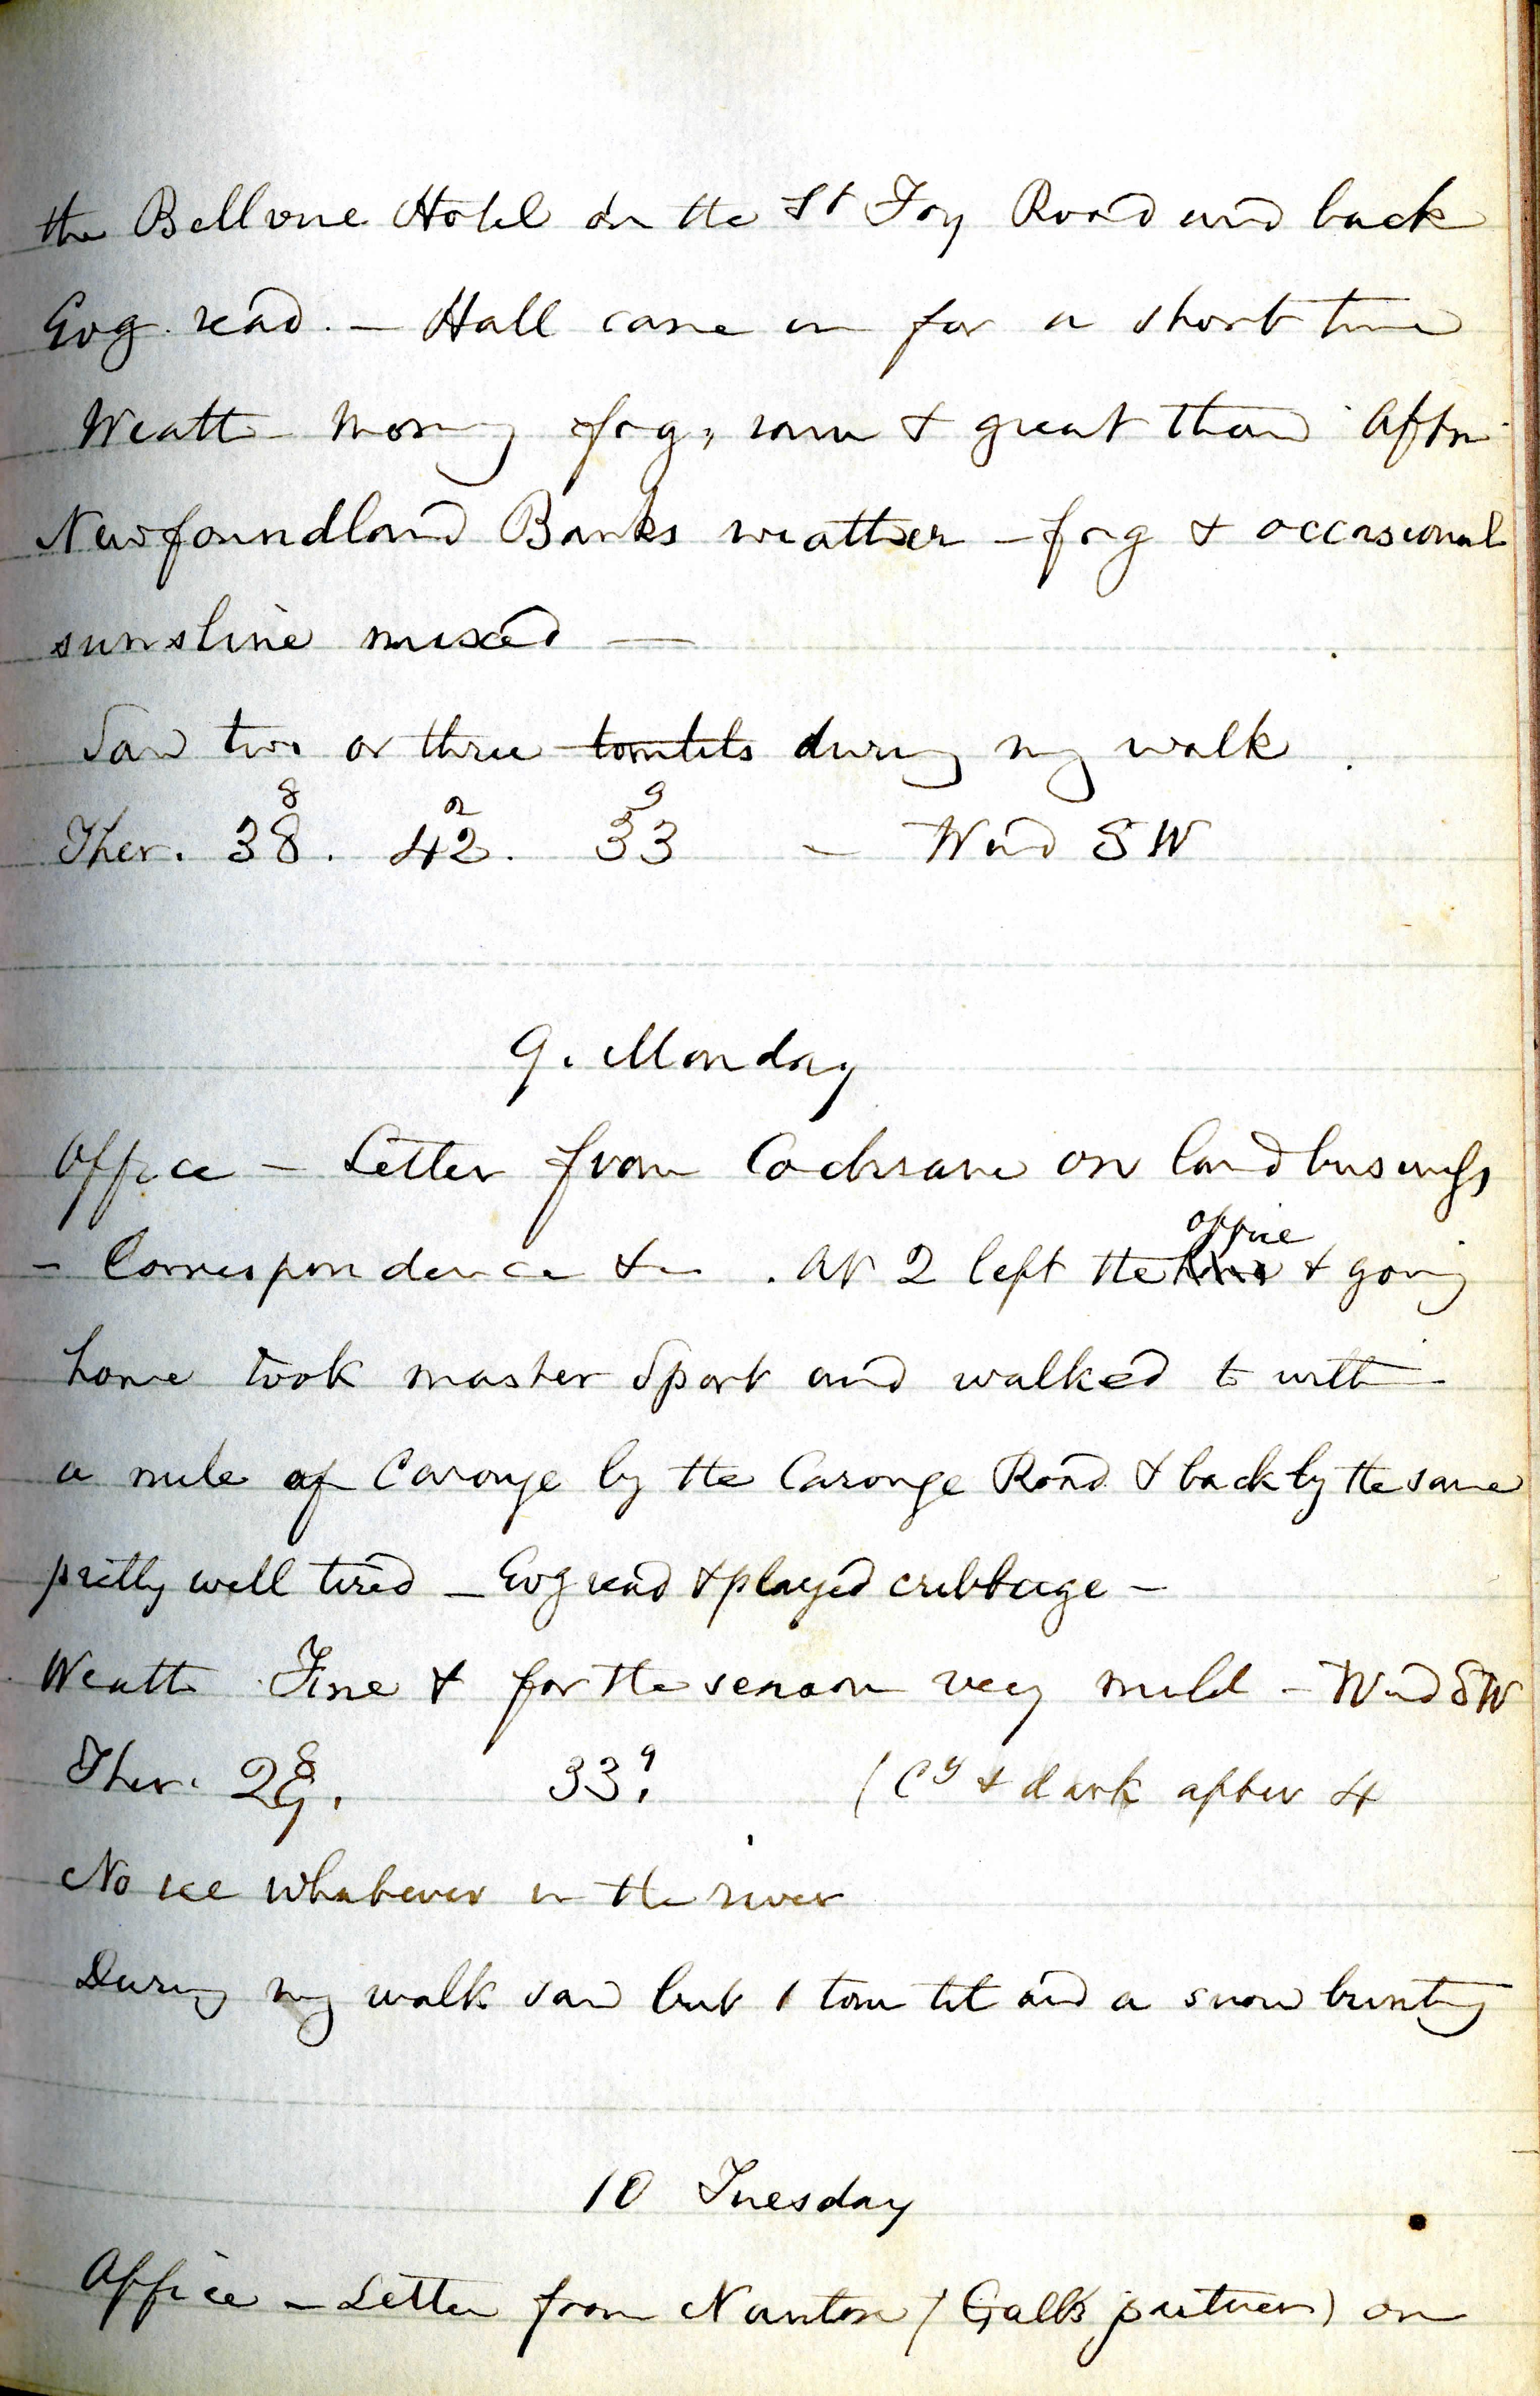 the Bellvue Hotel on the St Foy Road and back
Evg. read. — Hall came in for a short time
Weath Morning fog, rain & great thaw Aftn.
Newfoundland Banks weather — fog & occasional
sunshine mixed —
Saw two or three tomtits during my walk.
8 2 9
Ther. 38. 42. 33 — Wind SW
9. Monday
Office — Letter from Cochrane on land business
office
— Correspondence &c. At 2 left the & going
home took master Sport and walked to within
a mile of Carouge by the Carouge Road & back by the same
pretty well tired — Evg read & played cribbage —
Weath Fine & for the season very mild — Wind SW
8 9
Ther. 29. 33. (Cy & dark after 4
No ice whatever in the river
During my walk saw but 1 tom tit and a snow bunting
10 Tuesday
Office — Letter from Nanton (Galls partner) on